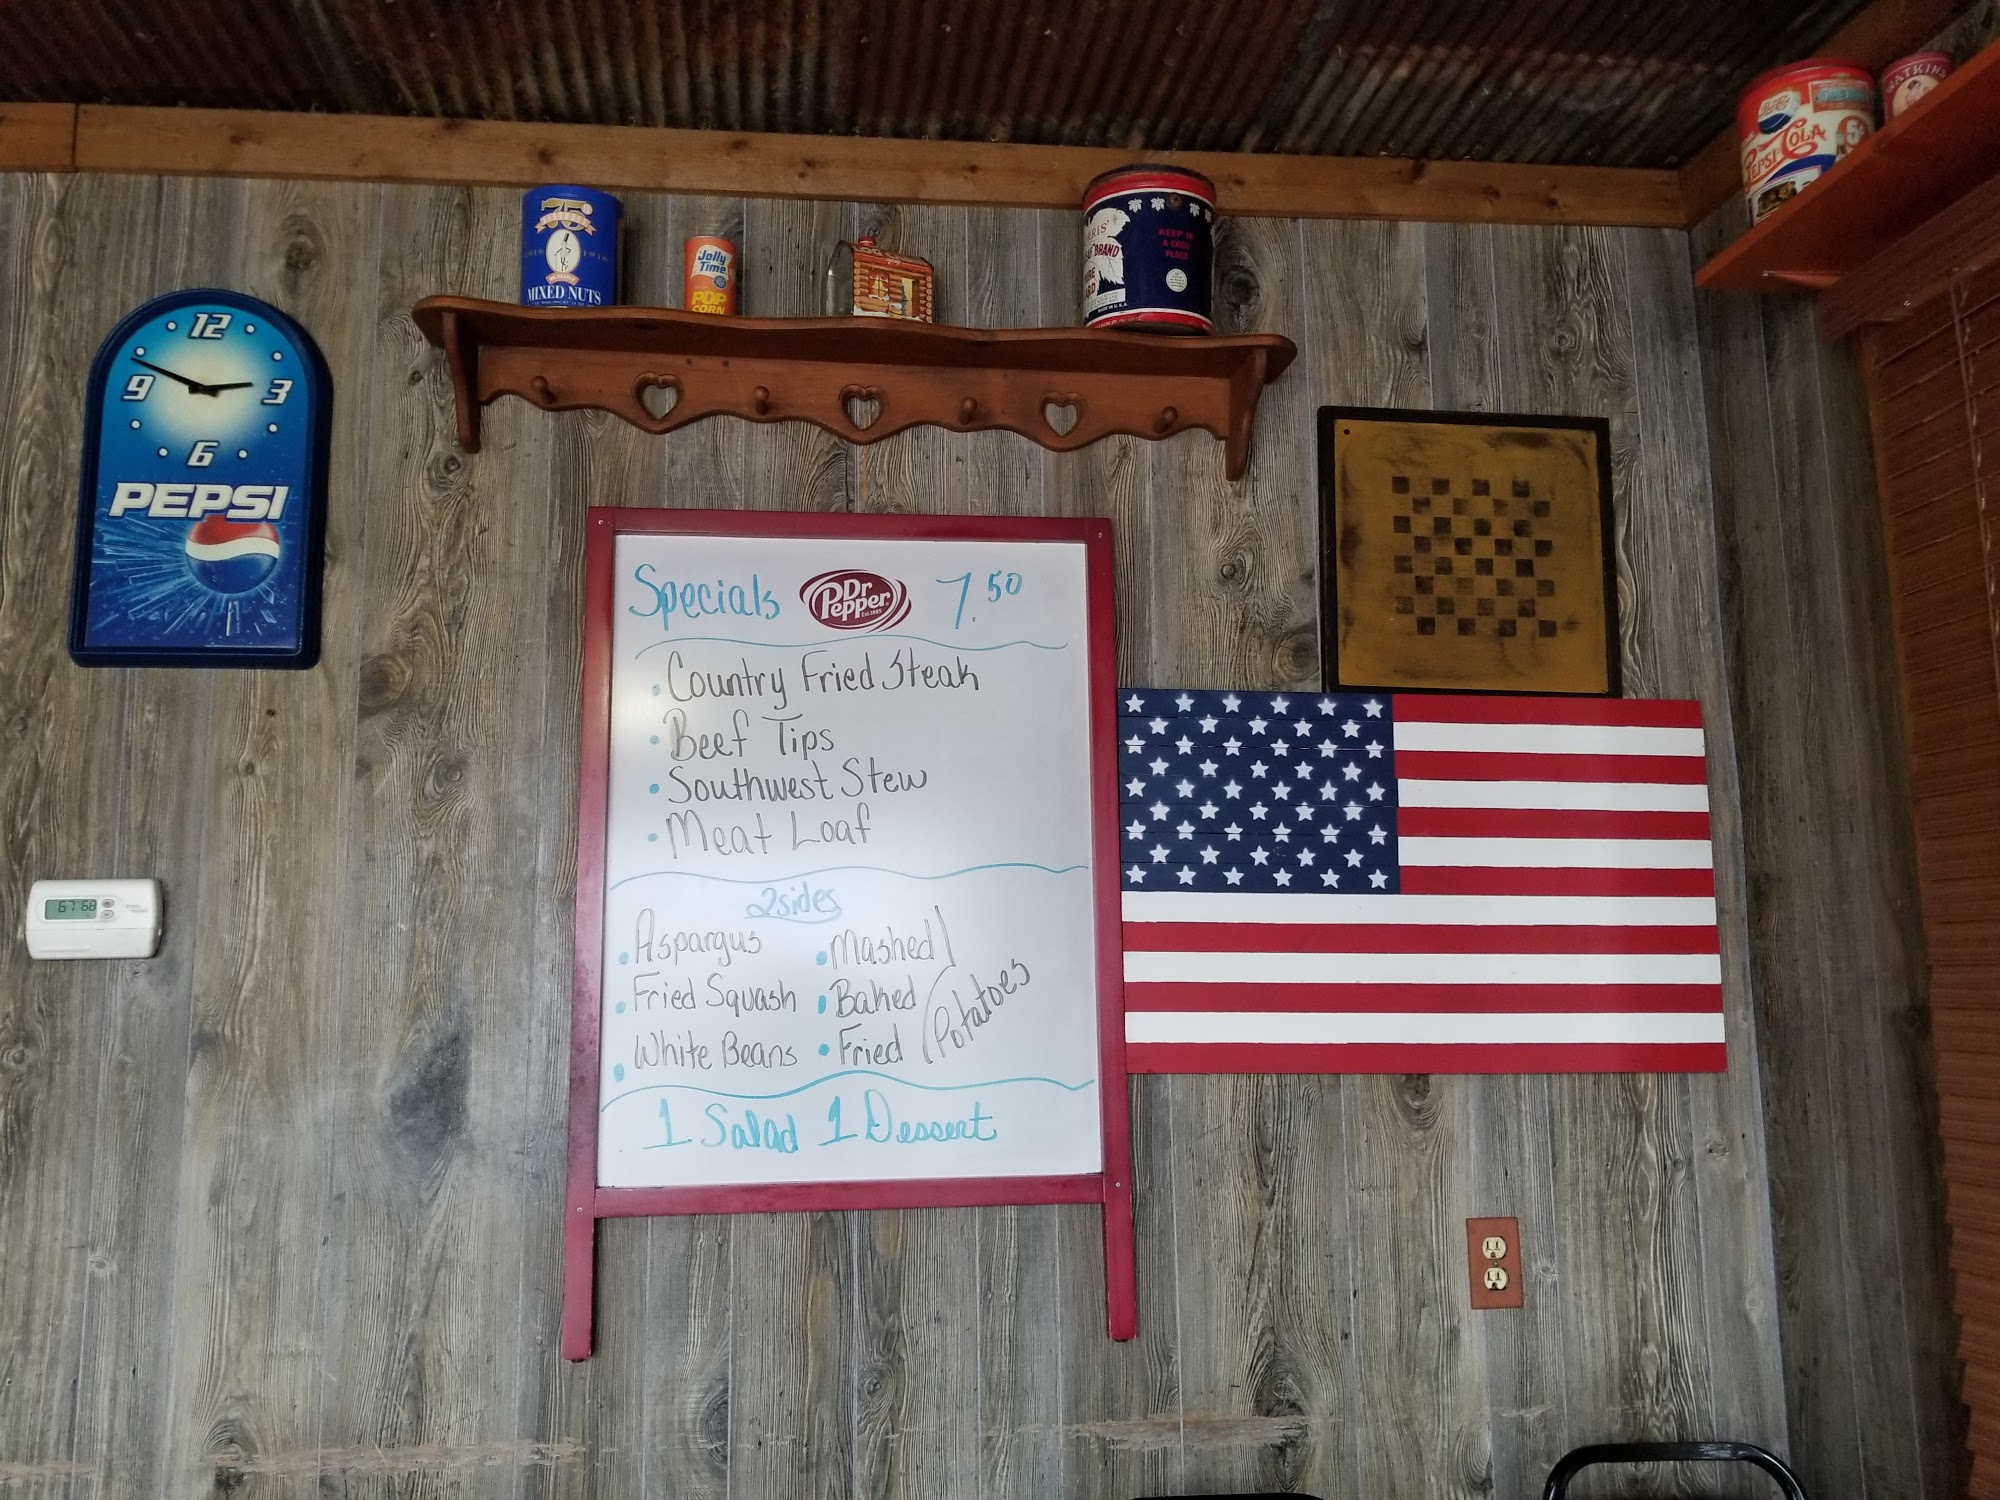 75th
MIXED NUTS
Jolly Time
POP CORN
BRAND
KEEP IN
A COOL
PLACE
PEPSI-COLA
5¢
WATKINS
12
9 3
6
PEPSI
67 68
Specials Dr Pepper 7.50
• Country Fried Steak
• Beef Tips
• Southwest Stew
• Meat Loaf
2 sides
• Aspargus • Mashed
• Fried Squash • Baked Potatoes
• White Beans • Fried
1 Salad 1 Dessert